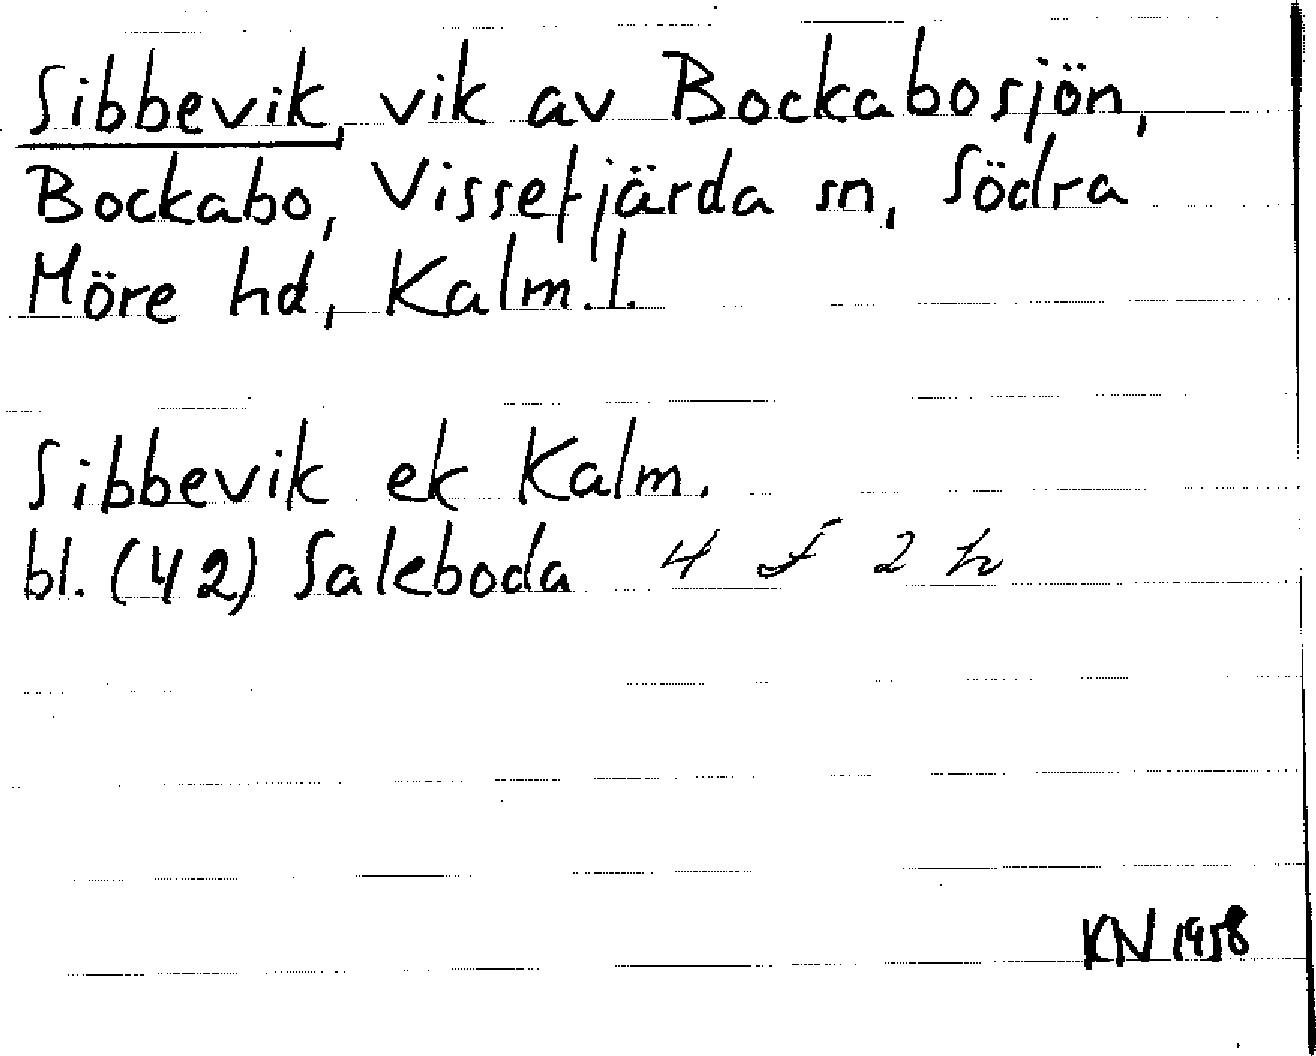 Sibbevik, vik av Bockabosjön,
Bockabo, Vissefjärda sn, Södra
Möre hd, Kalm.l.
Sibbevik ek Kalm.
bl. (42) Saleboda 4 f 2 h
KN 1958